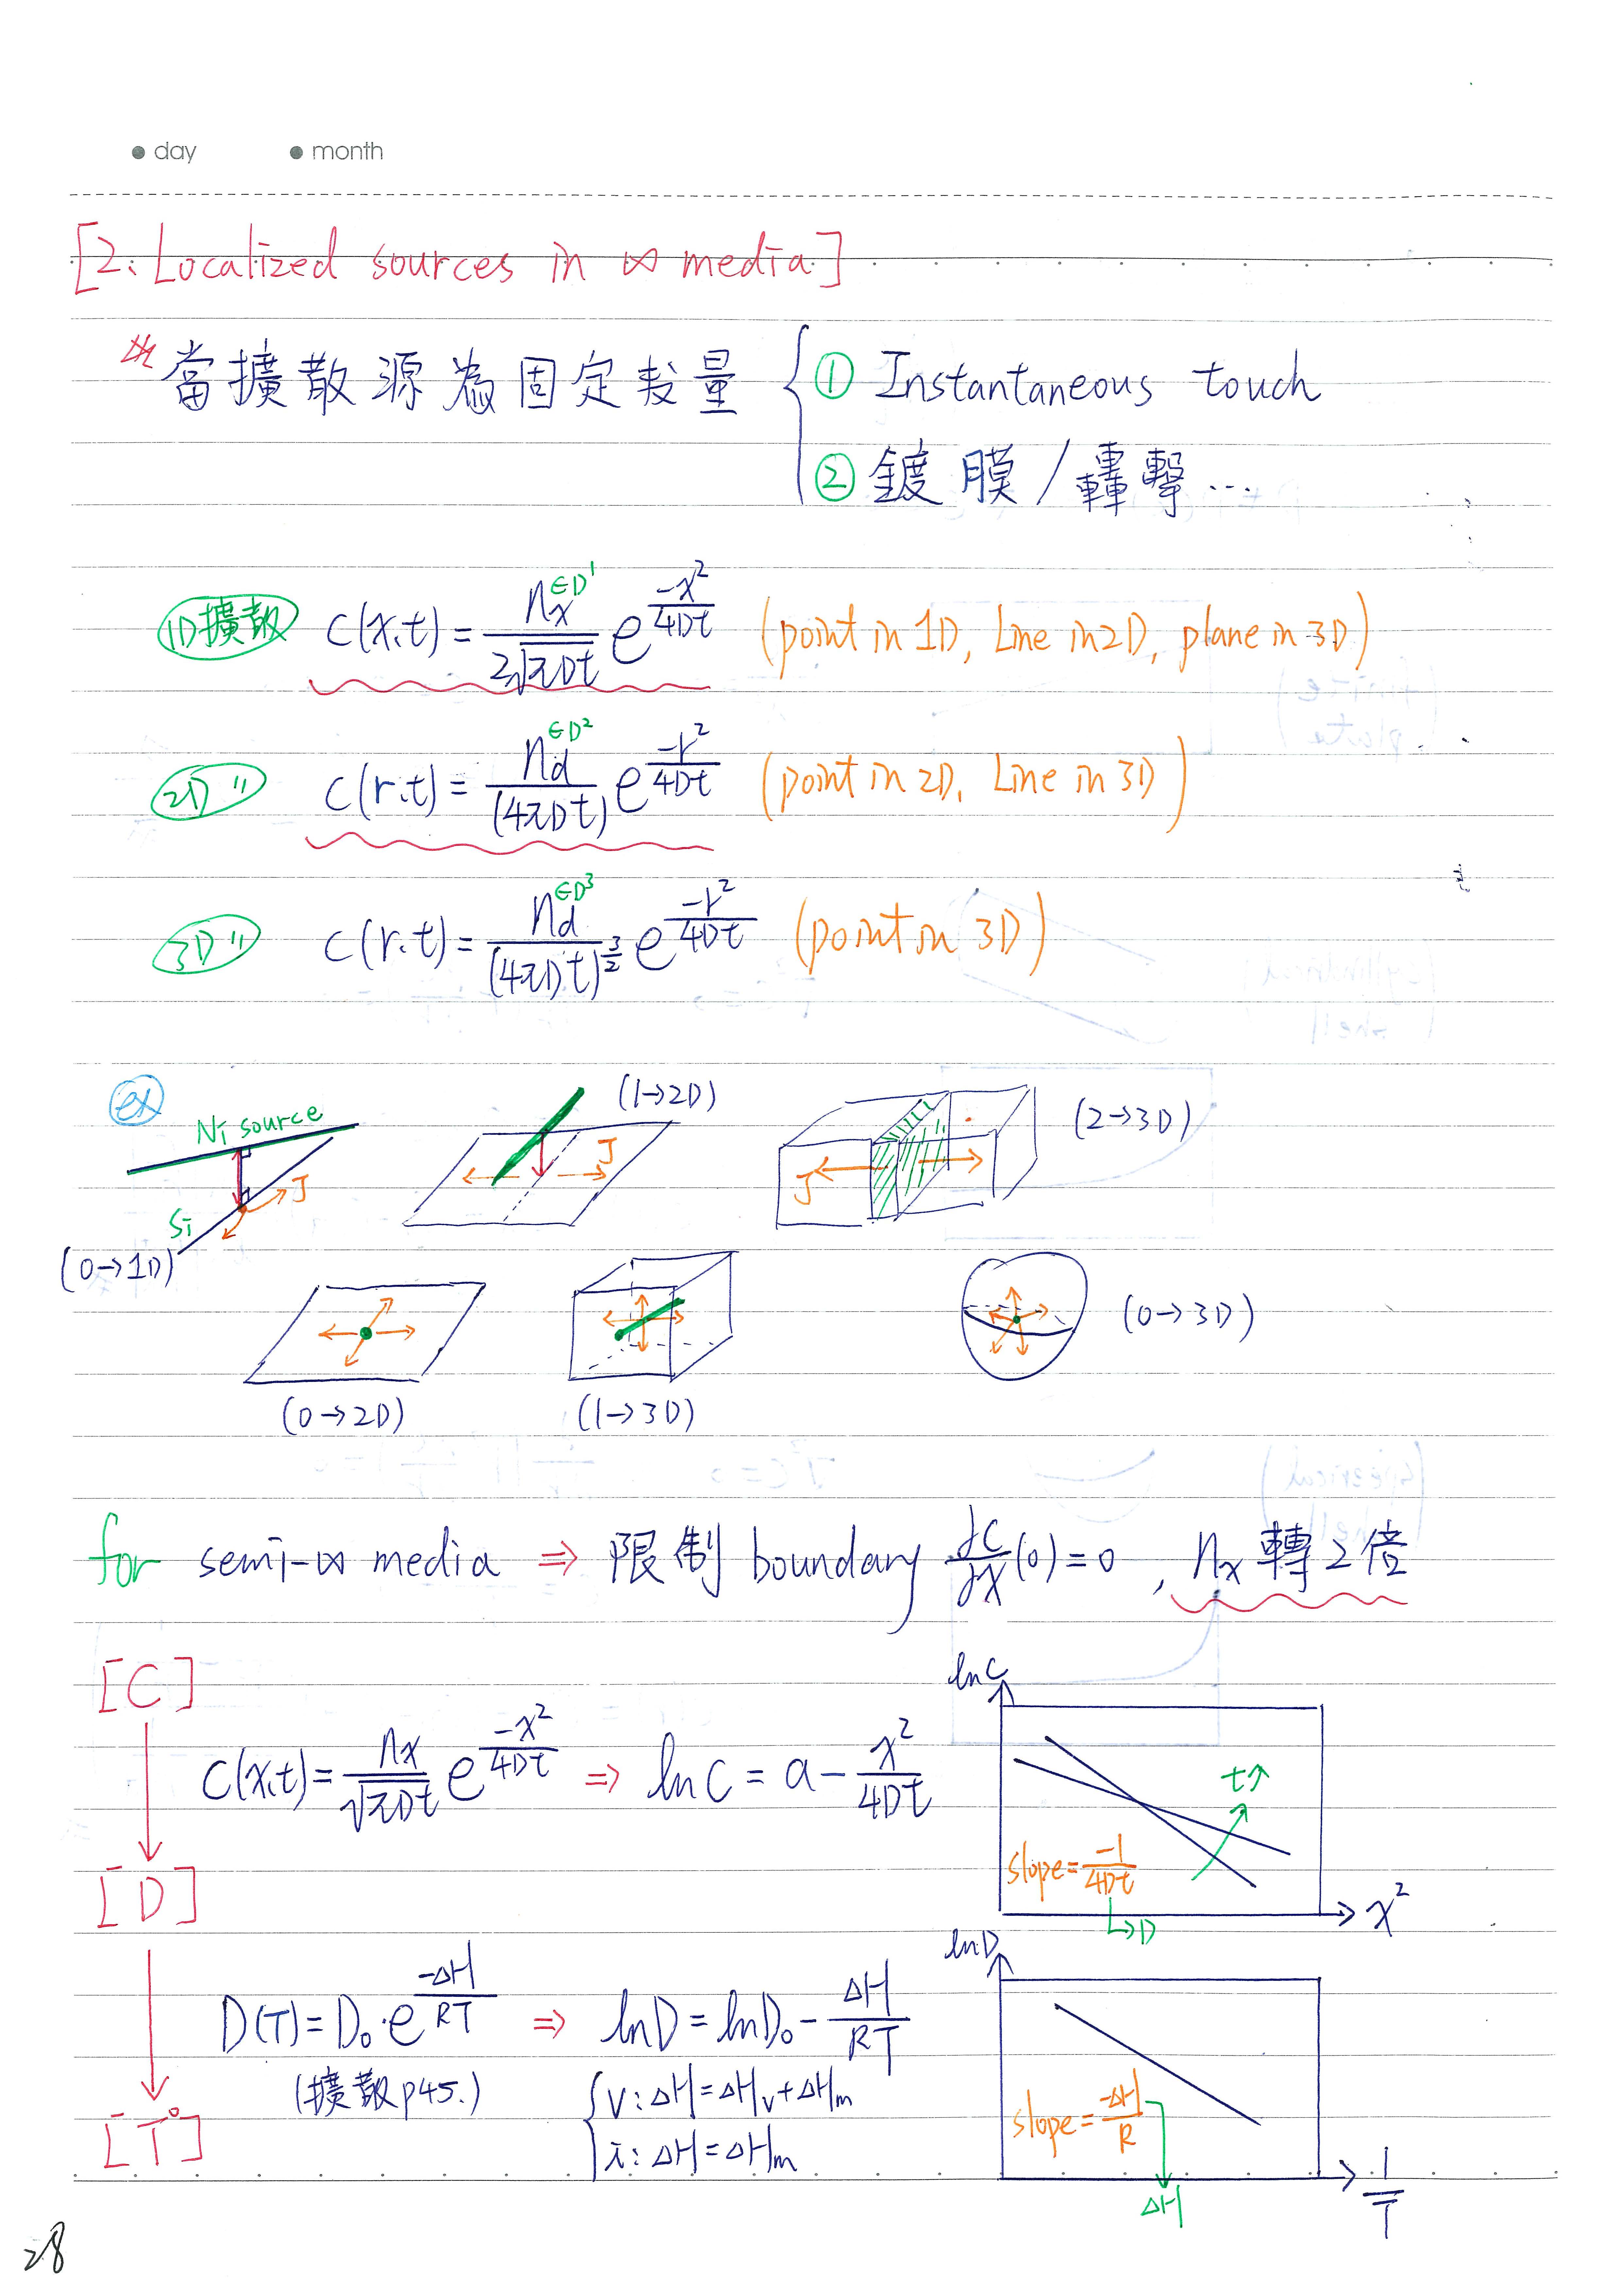 ● day ● month
[2. Localized sources in ∞ media]
※ 當擴散源為固定數量 { ① Instantaneous touch
② 鍍膜/轟擊...
1D擴散 C(x,t) = nx ∈D¹ / 2√πDt e^(-x²/4Dt) (point in 1D, Line in 2D, plane in 3D)
2D 〃 C(r,t) = nd ∈D² / (4πDt) e^(-r²/4Dt) (point in 2D, Line in 3D)
3D 〃 C(r,t) = nd ∈D³ / (4πDt)^(3/2) e^(-r²/4Dt) (point in 3D)
ex
Ni source
Si
J
(0→1D)
J
(1→2D)
J
(2→3D)
(0→2D)
(1→3D)
(0→3D)
for semi-∞ media ⇒ 限制 boundary ∂C/∂x (0) = 0 , nx 轉2倍
[C]
C(x,t) = nx/√πDt e^(-x²/4Dt) ⇒ ln C = a - x²/4Dt
ln C
t↑
slope = -1/4Dt
↳ D
x²
[D]
D(T) = D₀·e^(-ΔH/RT) ⇒ ln D = ln D₀ - ΔH/RT
(擴散 p45.)
{ V: ΔH = ΔHv + ΔHm
i: ΔH = ΔHm
ln D
slope = -ΔH/R
ΔH
1/T
[T°]
28